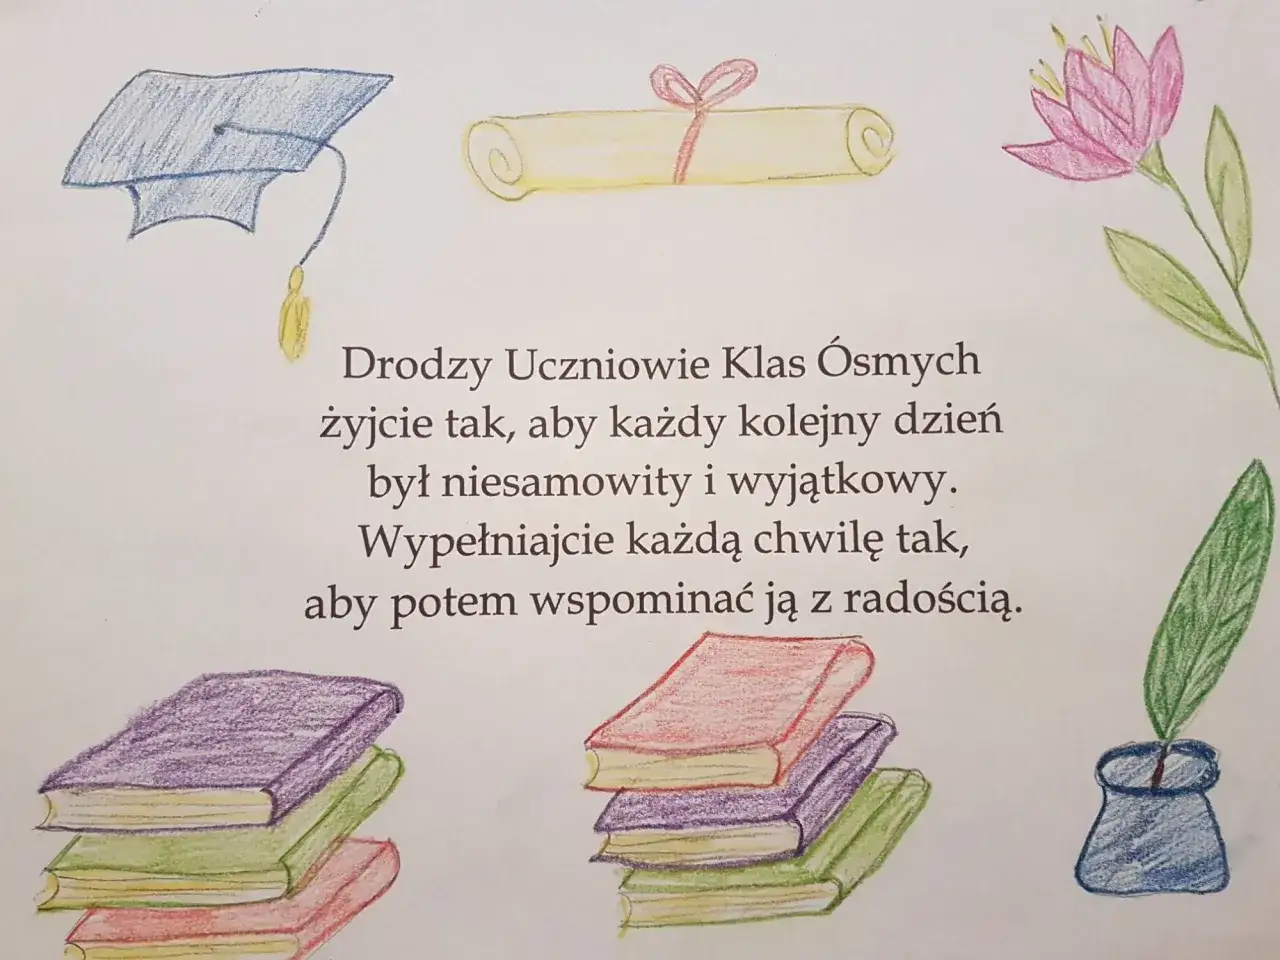 Drodzy Uczniowie Klas Ósmych
żyjcie tak, aby każdy kolejny dzień
był niesamowity i wyjątkowy.
Wypełniajcie każdą chwilę tak,
aby potem wspominać ją z radością.